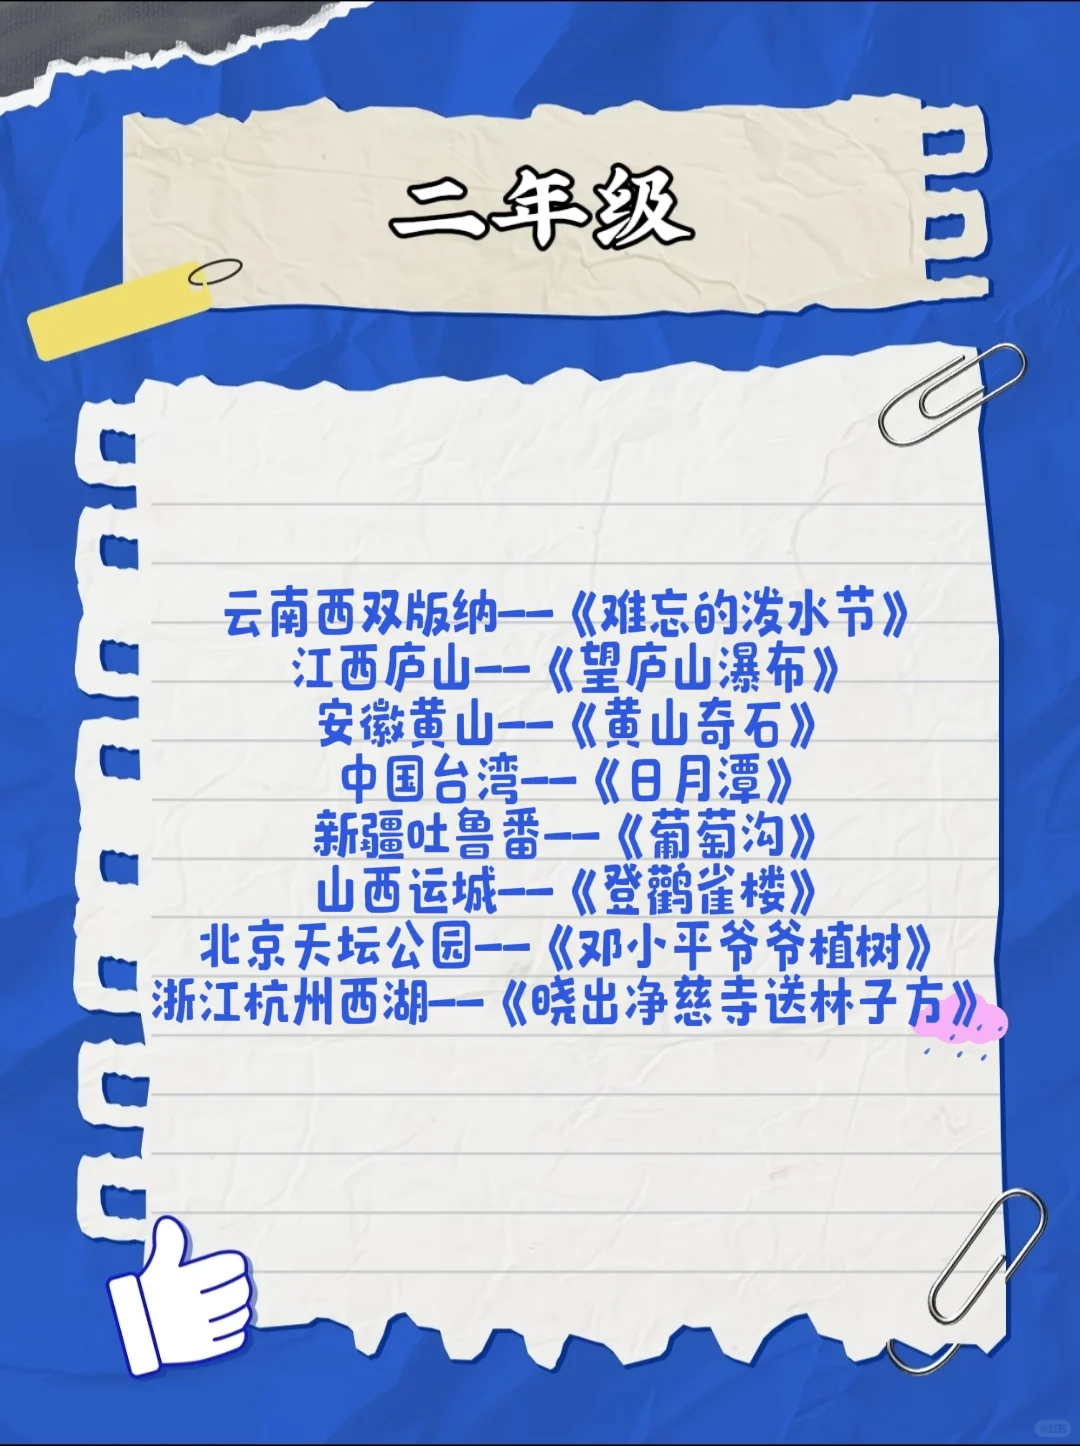 二年级
云南西双版纳--《难忘的泼水节》
江西庐山--《望庐山瀑布》
安徽黄山--《黄山奇石》
中国台湾--《日月潭》
新疆吐鲁番--《葡萄沟》
山西运城--《登鹳雀楼》
北京天坛公园--《邓小平爷爷植树》
浙江杭州西湖--《晓出净慈寺送林子方》
小红书